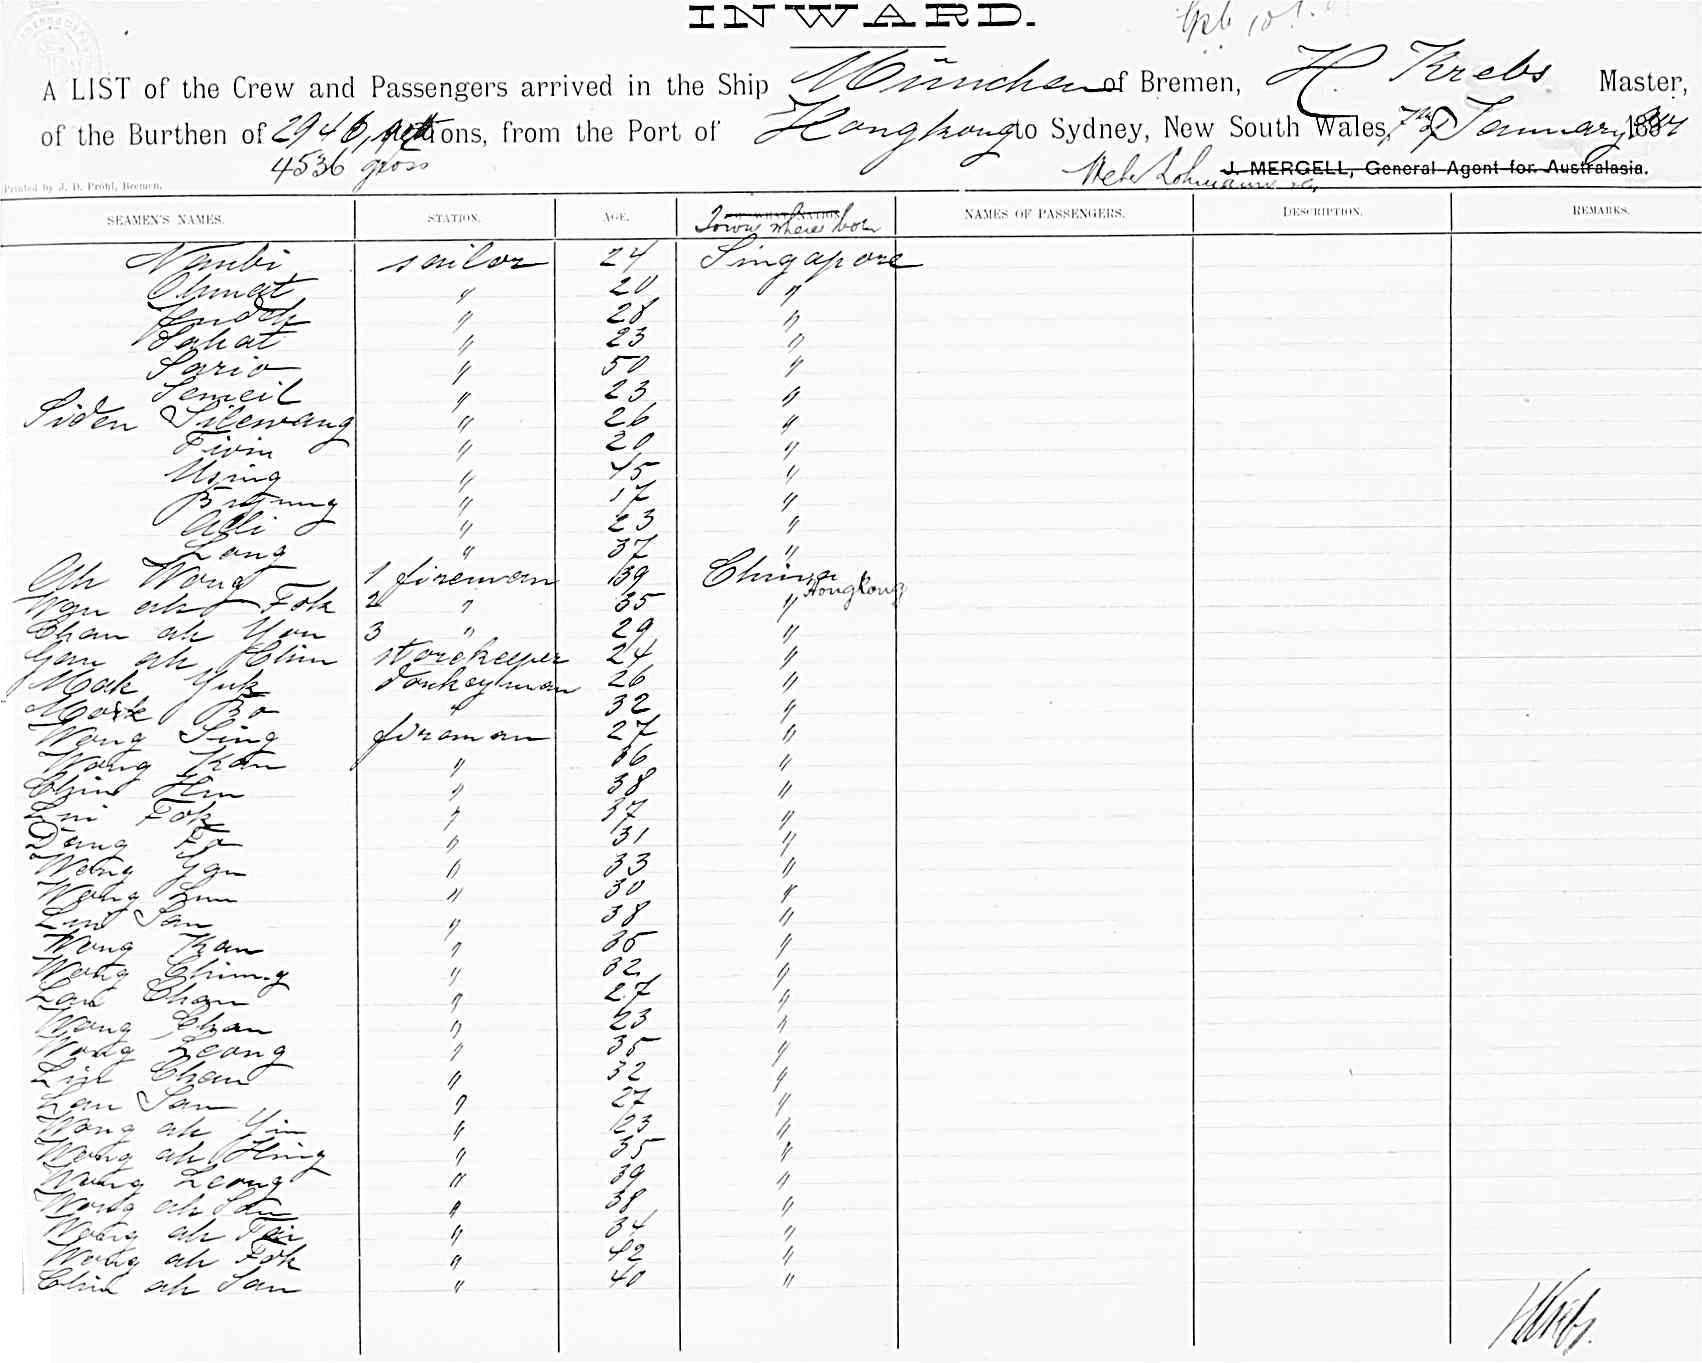 INWARD.
A LIST of the Crew and Passengers arrived in the Ship München of Bremen, H. Krebs Master,
of the Burthen of 2946, nett tons, from the Port of Hongkong to Sydney, New South Wales, January
4536 gross
J. MERGELL, General Agent for Australasia.
Printed by J. D. Pröhl, Bremen.
SEAMEN'S NAMES. STATION. AGE. Town where born NAMES OF PASSENGERS. DESCRIPTION. REMARKS.
Nambi sailor 24 Singapore
Ahmat " 20 "
" 28 "
Sahat " 23 "
Sario " 50 "
Semeil " 23 "
Siden Silewang " 26 "
Tivin " 20 "
Using " 45 "
" 17 "
Alli " 23 "
Lang " 37 "
Ah Wong 1 fireman 39 China Hongkong
Wan ah Fok 2 " 35 "
Chan ah You 3 " 29 "
Gan ah Chim storekeeper 24 "
Mak Yuk donkeyman 26 "
Mack Bo " 32 "
Wong Sing fireman 27 "
Wong Kan " 36 "
Chin Him " 38 "
Lui Fok " 37 "
Dang Fo " 31 "
Wong Yan " 33 "
Wong Lun " 30 "
Lui San " 38 "
Wong Kan " 35 "
Wong Chung " 32 "
Lau Chan " 27 "
Wong Chan " 23 "
Wong Leong " 35 "
Lin Chan " 32 "
Lau San " 27 "
Wong ah Yin " 23 "
Wong ah Hing " 35 "
Wong Leong " 39 "
Wong ah San " 38 "
Wong ah Tai " 34 "
Wong ah Fok " 42 "
Chin ah San " 40 "
H Krebs.